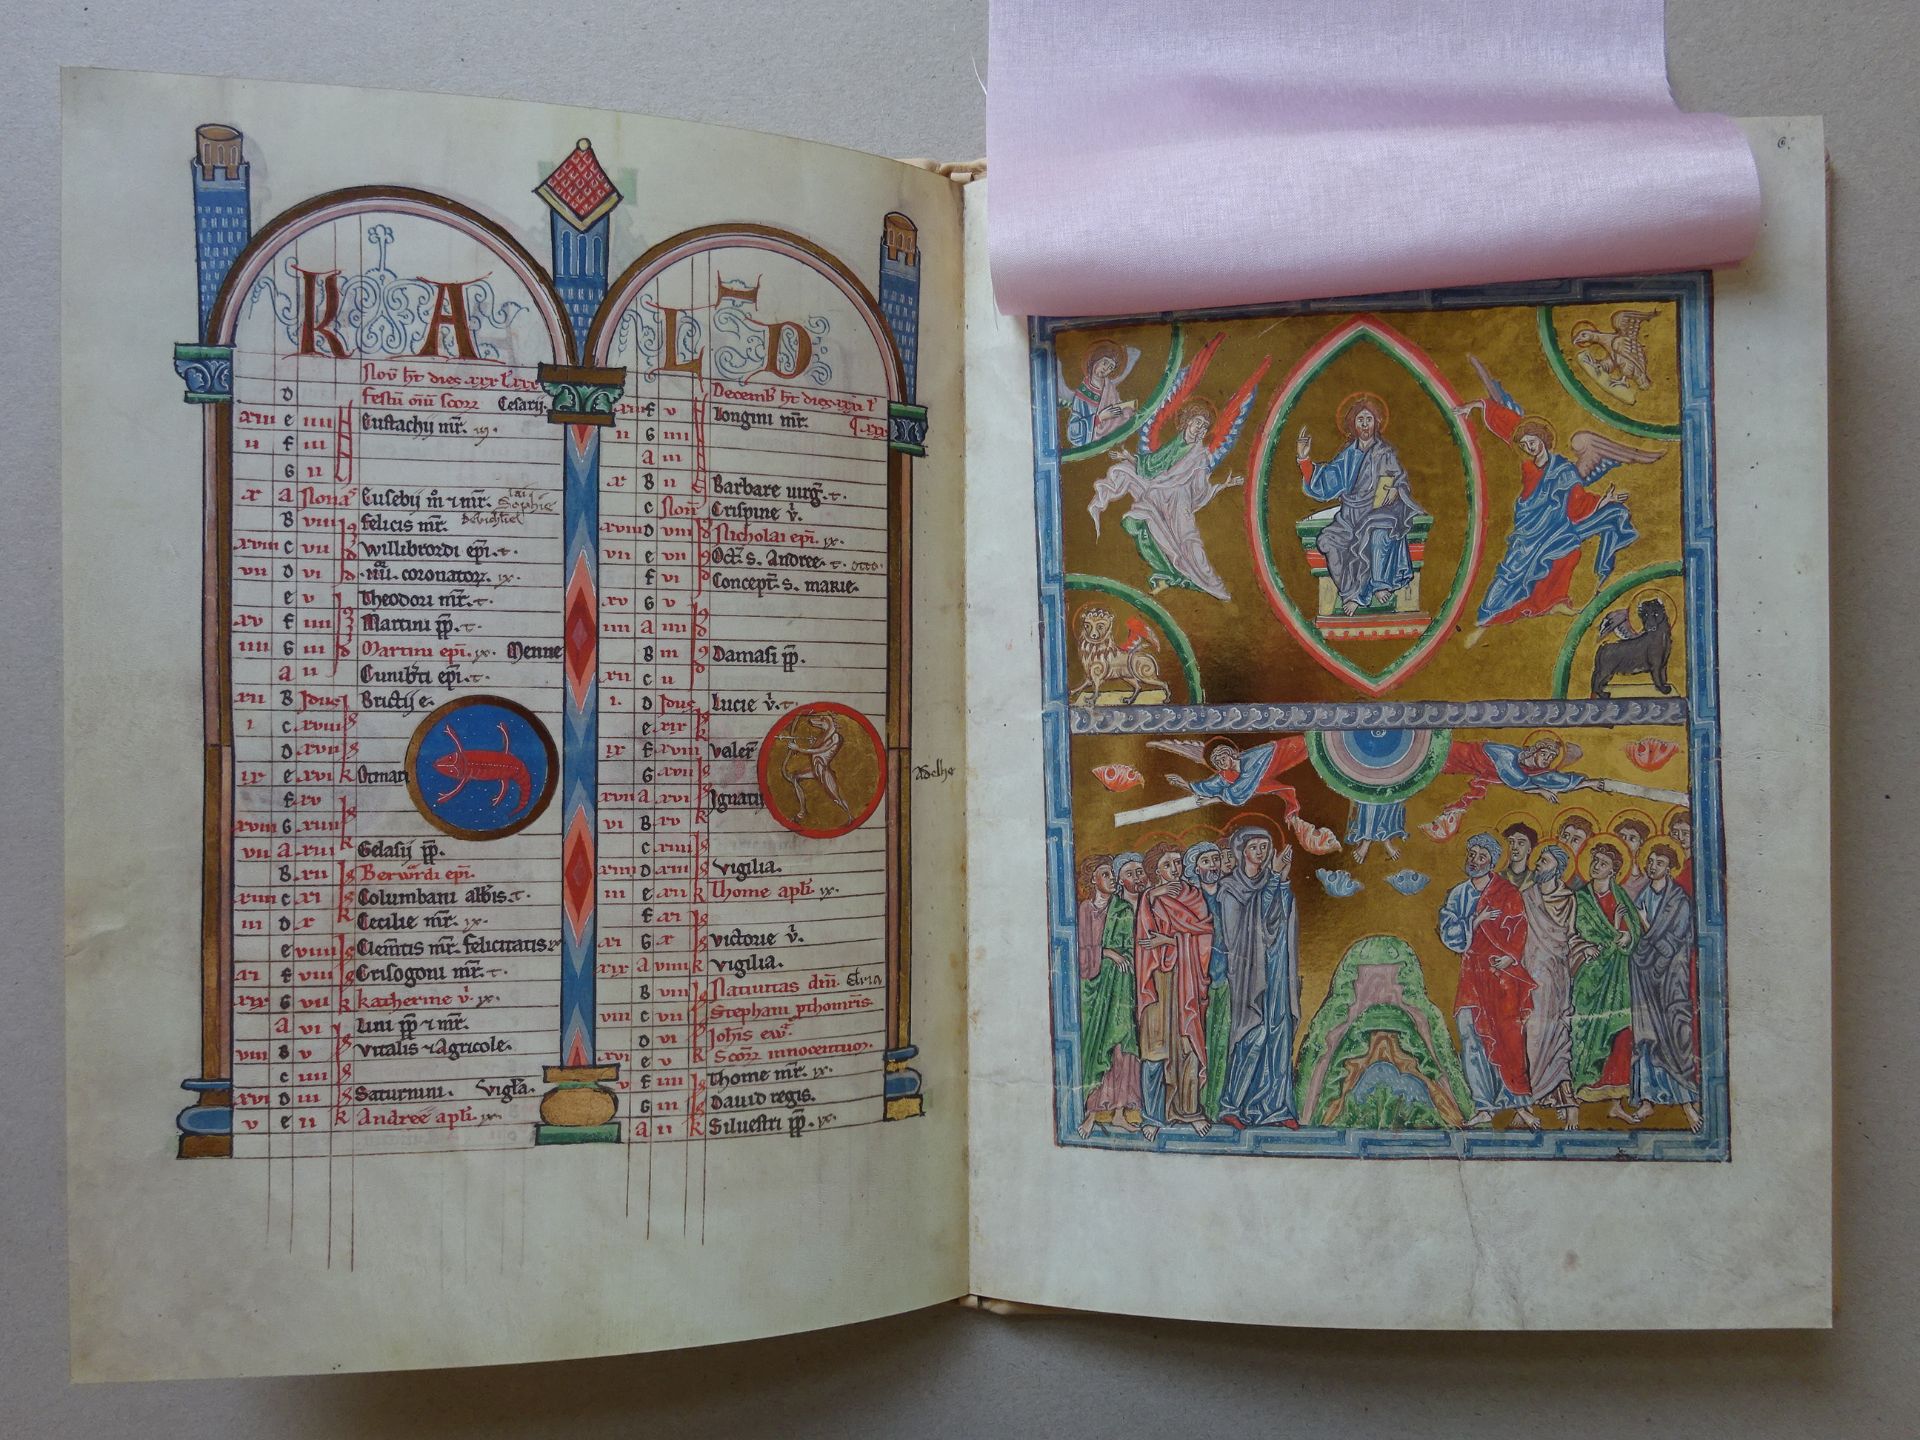 K A
D Festū om̄ scorꝝ Cesarij.
xiii e iiii Eustachij mr̄.
ii f iii
G ii
x a Non Eusebij
B viii felicis mr̄.
xviii c vii willibrordi ep̄i. t.
vii D vi coronatorꝝ. ix.
e v Theodori mr̄. t.
xv f iiii Martini pp̄. t.
iiii G iii Martini ep̄i. ix. Menne
a ii Cunib̄ti ep̄i. t.
xii B Idus Brictij e.
i c xviii
D xvii
ix e xvi k Otmari
f xv
xviii G xiiii
vii a xiii Gelasij pp̄.
B xii Berwardi ep̄i.
xiiii c xi Columbani abb̄is. t.
iii D x k Cecilie mr̄. ix.
e viiii Clem̄tis mr̄. felicitatis ix
xi f viii Crisogoni mr̄. t.
xix G vii k katherine v̄. ix.
a vi Lini pp̄ ⁊ mr̄.
viii B v vitalis ⁊ Agricole.
c iiii
xvi D iii Saturnini. vigl̄a.
v e ii k Andree apl̄i. ix.
L D
Decemb̄ ht̄ dies xxxi l̄
xiii f v longini mr̄.
ii G iiii
a iii
x B ii Barbare uirḡ. t.
c Non Crispine v̄.
xviii D viii Nicholai ep̄i. ix.
vii e vii Oct̄. s. Andree. t.
f vi Concept̄. s. marie.
xv G v
iiii a iiii
B iii Damasi pp̄.
xii c ii
i. D Idus Lucie v̄. t.
e xix
ix f xviii valer̄
G xvii
xvii a xvi Ignatij
vi B xv k
c xiiii
xiiii D xiii vigilia.
iii e xii k Thome apl̄i. ix.
f xi
xi G x victorie v̄.
xix a viiii k vigilia.
B viii Natiuitas dn̄i.
viii c vii Stephani
D vi Joh̄is ew̄.
xvi e v k Scorꝝ innocentum.
v f iiii Thome mr̄. ix.
G iii Dauid regis.
a ii k Siluestri pp̄. ix.
Adelhe
6